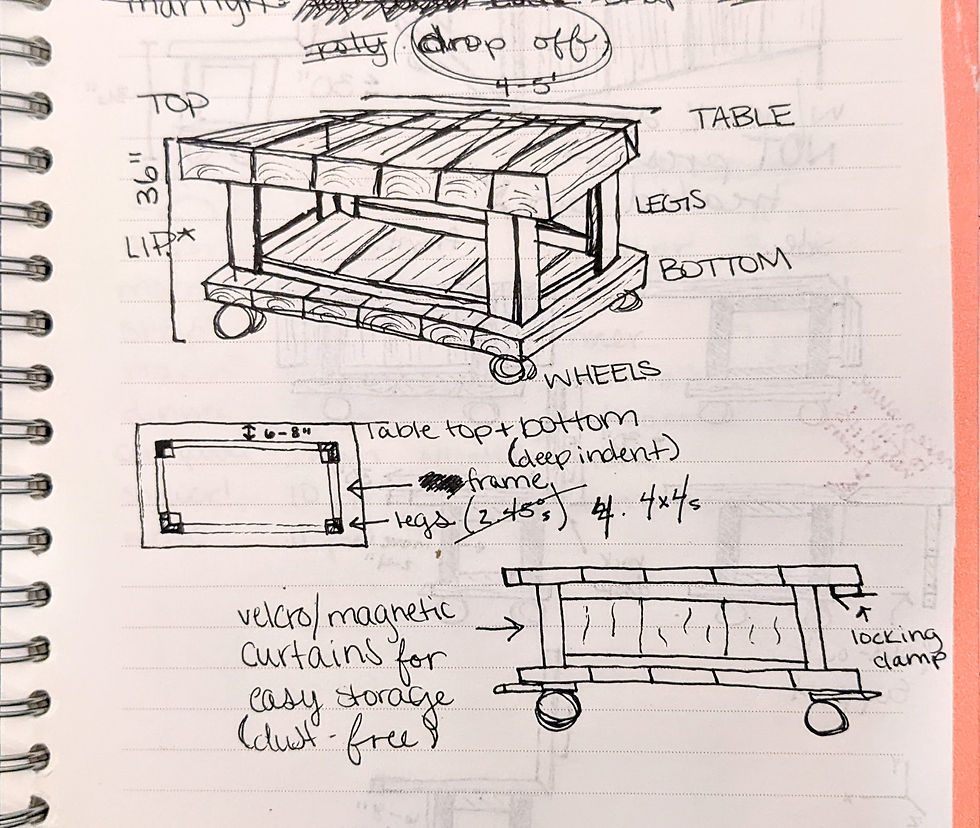 poly drop off
4-5'
TOP
TABLE
36"
LEGS
LIP*
BOTTOM
WHEELS
6-8"
Table top + bottom
(deep indent)
frame
legs (2 45°s) 4. 4x4s
velcro/magnetic
curtains for
easy storage
(dust-free)
locking
clamp